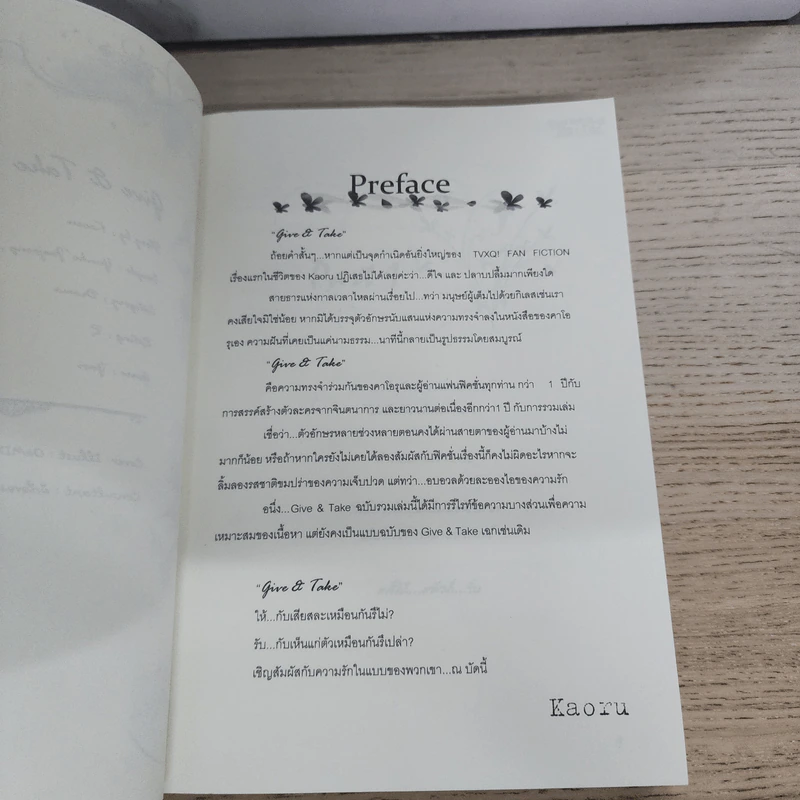 Give & Take
Preface
"Give & Take"
ถ้อยคำสั้นๆ...หากแต่เป็นจุดกำเนิดอันยิ่งใหญ่ของ TVXQ! FAN FICTION
เรื่องแรกในชีวิตของ Kaoru ปฏิเสธไม่ได้เลยค่ะว่า...ดีใจ และ ปลาบปลื้มมากเพียงใด
สายธารแห่งกาลเวลาไหลผ่านเรื่อยไป...ทว่า มนุษย์ผู้เต็มไปด้วยกิเลสเช่นเรา
คงเสียใจมิใช่น้อย หากมิได้บรรจุตัวอักษรนับแสนแห่งความทรงจำลงในหนังสือของคาโอ
รุเอง ความฝันที่เคยเป็นแค่นามธรรม...นาทีนี้กลายเป็นรูปธรรมโดยสมบูรณ์
"Give & Take"
คือความทรงจำร่วมกันของคาโอรุและผู้อ่านแฟนฟิคชั่นทุกท่าน กว่า 1 ปีกับ
การสรรค์สร้างตัวละครจากจินตนาการ และยาวนานต่อเนื่องอีกกว่า1 ปี กับการรวมเล่ม
เชื่อว่า...ตัวอักษรหลายช่วงหลายตอนคงได้ผ่านสายตาของผู้อ่านมาบ้างไม่
มากก็น้อย หรือถ้าหากใครยังไม่เคยได้ลองสัมผัสกับฟิคชั่นเรื่องนี้ก็คงไม่ผิดอะไรหากจะ
ลิ้มลองรสชาติขมปร่าของความเจ็บปวด แต่ทว่า...อบอวลด้วยละอองไอของความรัก
อนึ่ง...Give & Take ฉบับรวมเล่มนี้ได้มีการรีไรท์ข้อความบางส่วนเพื่อความ
เหมาะสมของเนื้อหา แต่ยังคงเป็นแบบฉบับของ Give & Take เฉกเช่นเดิม
"Give & Take"
ให้...กับเสียสละเหมือนกันรึไม่?
รับ...กับเห็นแก่ตัวเหมือนกันรึเปล่า?
เชิญสัมผัสกับความรักในแบบของพวกเขา...ณ บัดนี้
Kaoru